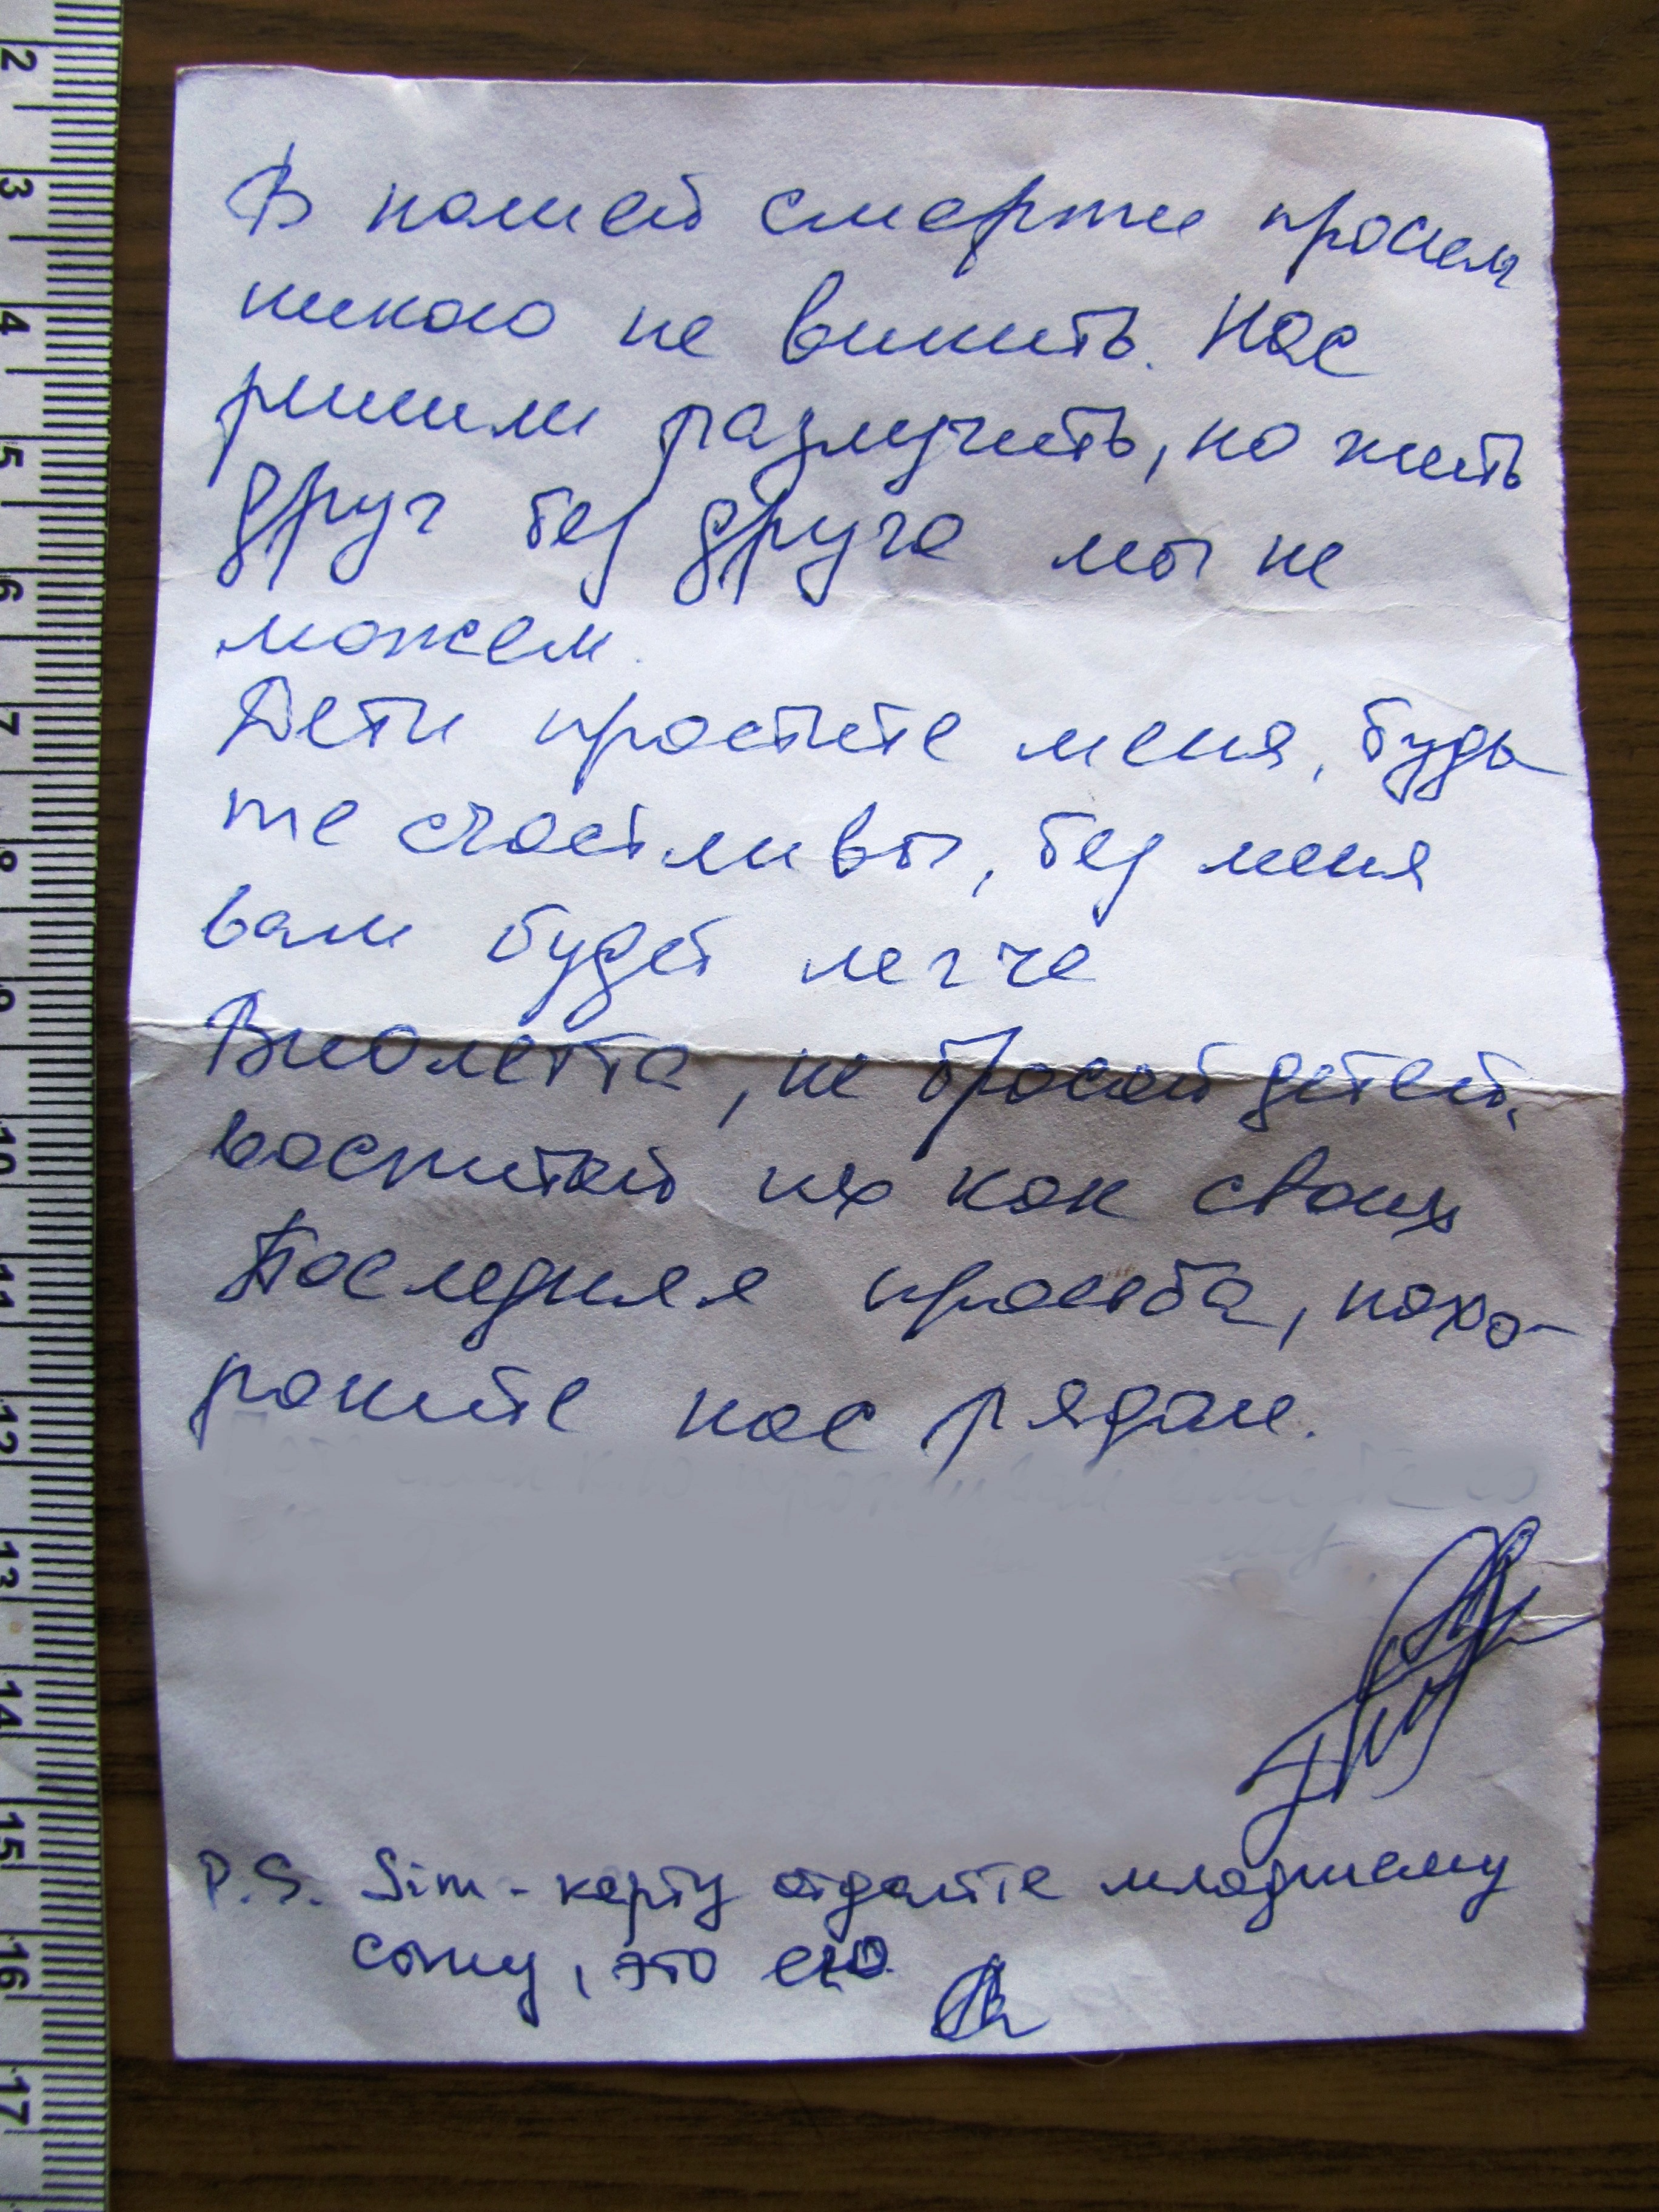 В нашей смерти просим
никого не винить. Нас
решили разлучить, но жить
друг без друга мы не
можем.
Дети простите меня, будь
те счастливы, без меня
вам будет легче
Виолетта, не бросай детей,
воспитай их как своих
Последняя просьба, похо-
роните нас рядом.
P.S. Sim-карту отдайте младшему
сыну, это его
2
3
4
5
6
7
8
9
10
11
12
13
14
15
16
17